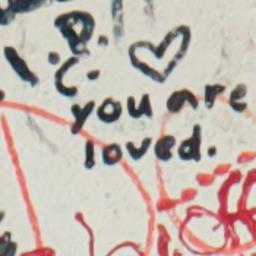 P.
C.
you are
loved.